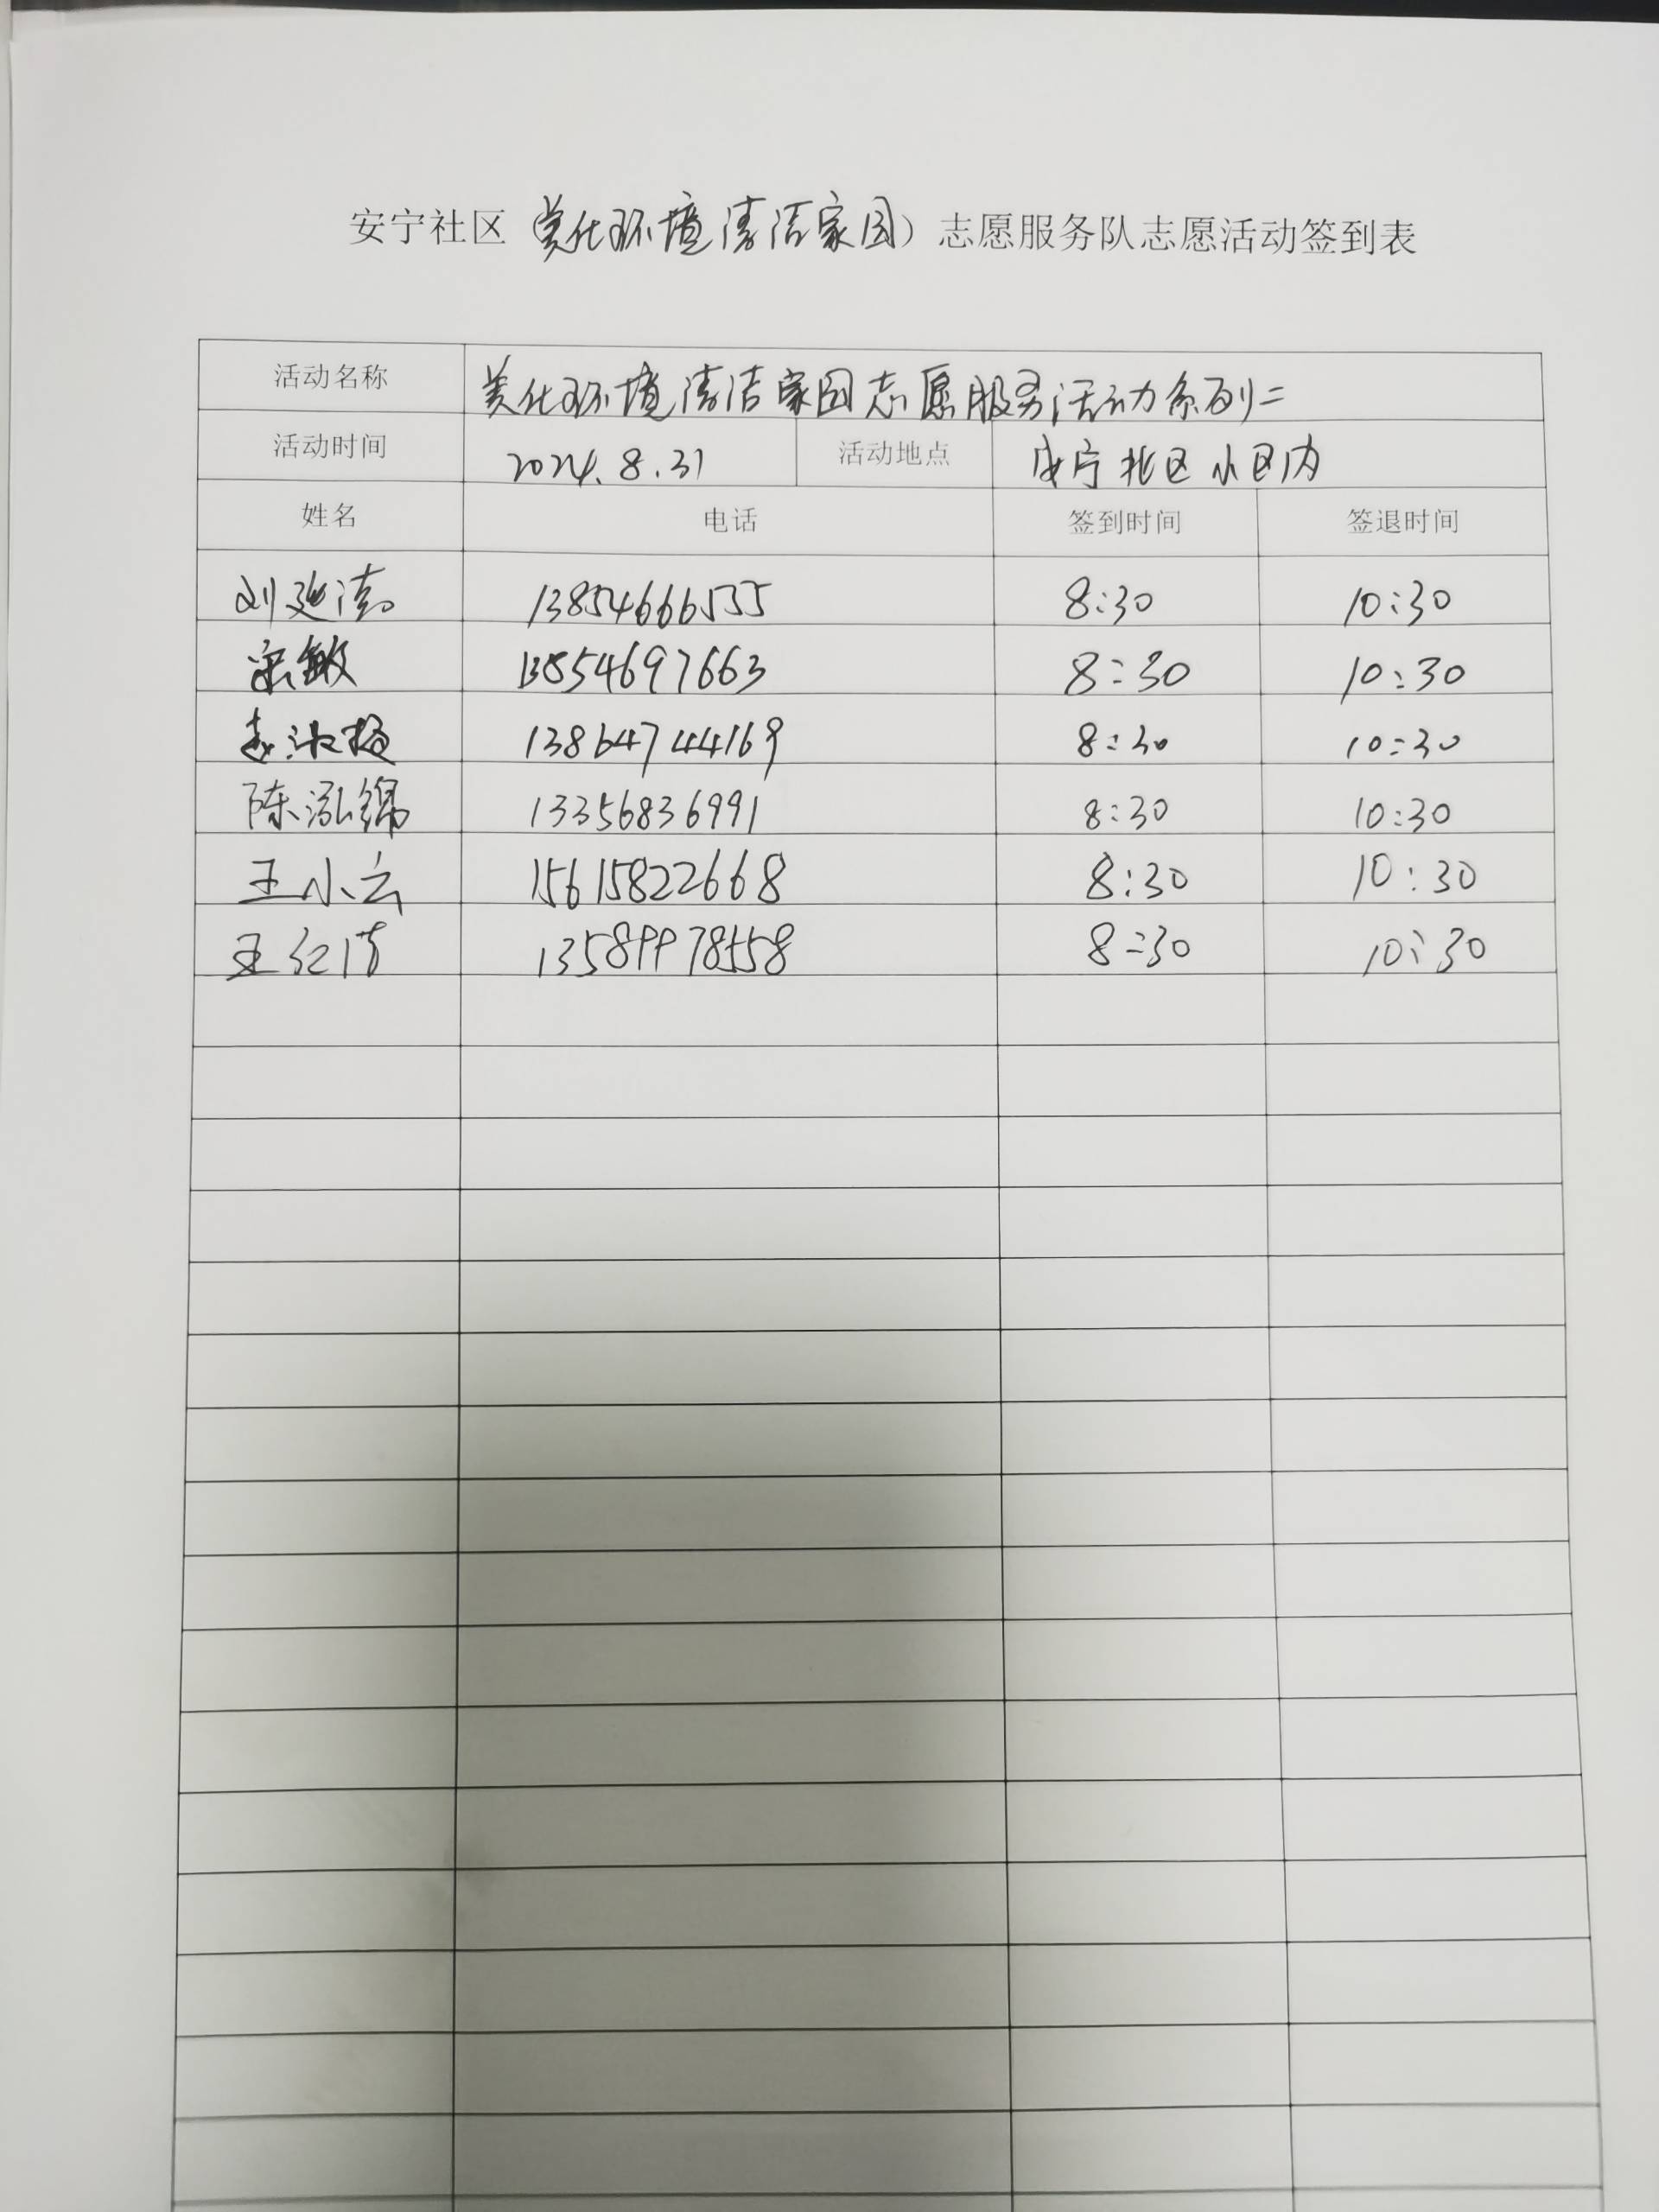 安宁社区（美化环境清洁家园）志愿服务队志愿活动签到表
活动名称 美化环境清洁家园志愿服务活动系列二
活动时间 2024.8.31 活动地点 安宁北区小区内
姓名 电话 签到时间 签退时间
刘延涛 13854666555 8:30 10:30
宋敏 13854697663 8:30 10:30
赵淑梅 13864744169 8:30 10:30
陈泓绵 13356836991 8:30 10:30
王小云 15615822668 8:30 10:30
王红倩 13589978558 8:30 10:30